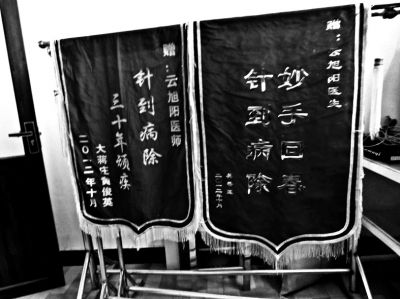 赠：云旭阳医师
针到病除
三十年顽疾
大蒋庄黄俊英
二〇一二年十月
赠：云旭阳医生
妙手回春
针到病除
二〇一二年十月